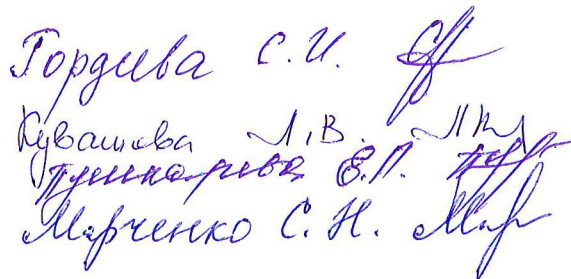 Гордеева С.И.
Кувашова Л.В.
Пушкарева Е.П.
Марченко С.Н. Мар